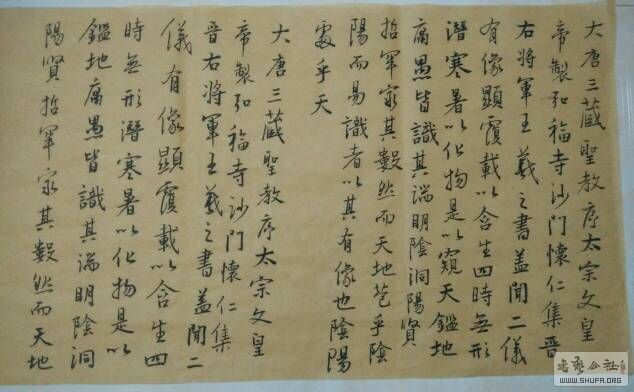 大唐三藏聖教序太宗文皇
帝製弘福寺沙門懷仁集晉
右將軍王羲之書蓋聞二儀
有像顯覆載以含生四時無形
潛寒暑以化物是以窺天鑑地
庸愚皆識其端明陰洞陽賢
哲罕窮其數然而天地苞乎陰
陽而易識者以其有像也陰陽
處乎天
大唐三藏聖教序太宗文皇
帝製弘福寺沙門懷仁集
晉右將軍王羲之書蓋聞二
儀有像顯覆載以含生四
時無形潛寒暑以化物是以
鑑地庸愚皆識其端明陰洞
陽賢哲罕窮其數然而天地
書藝公社
WWW.SHUFA.ORG